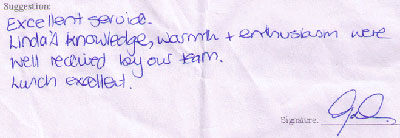 Suggestion:
Excellent service.
Linda's knowledge, warmth + enthusiasm were
well received by our team.
Lunch excellent.
Signature: